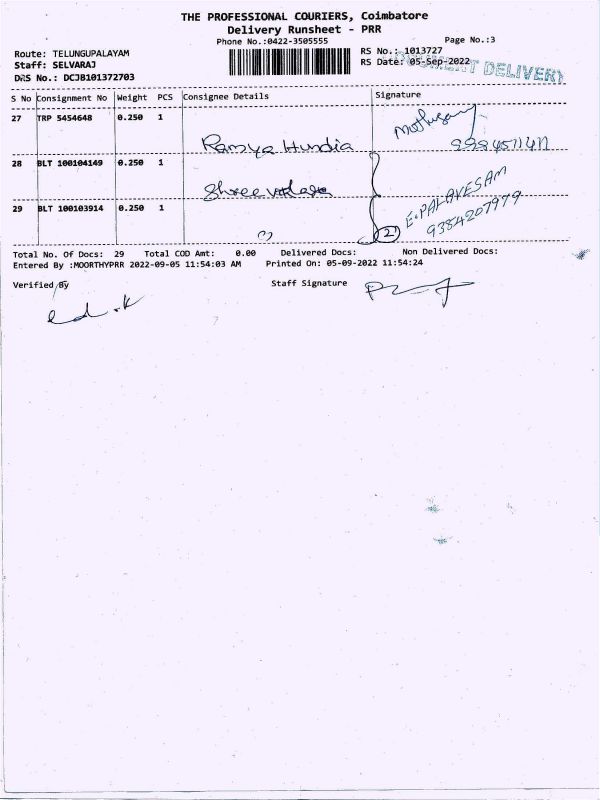 THE PROFESSIONAL COURIERS, Coimbatore
Delivery Runsheet - PRR
Phone No.:0422-3505555
Page No.:3
Route: TELUNGUPALAYAM
RS No.: 1013727
Staff: SELVARAJ
RS Date: 05-Sep-2022
DRS No.: DCJB101372703
DELIVERY
S No Consignment No Weight PCS Consignee Details Signature
27 TRP 5454648 0.250 1
Ramya Hundia
28 BLT 100104149 0.250 1
Shree
29 BLT 100103914 0.250 1
E.PALAVESAM
9384207979
2
Total No. Of Docs: 29 Total COD Amt: 0.00 Delivered Docs: Non Delivered Docs:
Entered By :MOORTHYPRR 2022-09-05 11:54:03 AM Printed On: 05-09-2022 11:54:24
Verified By Staff Signature